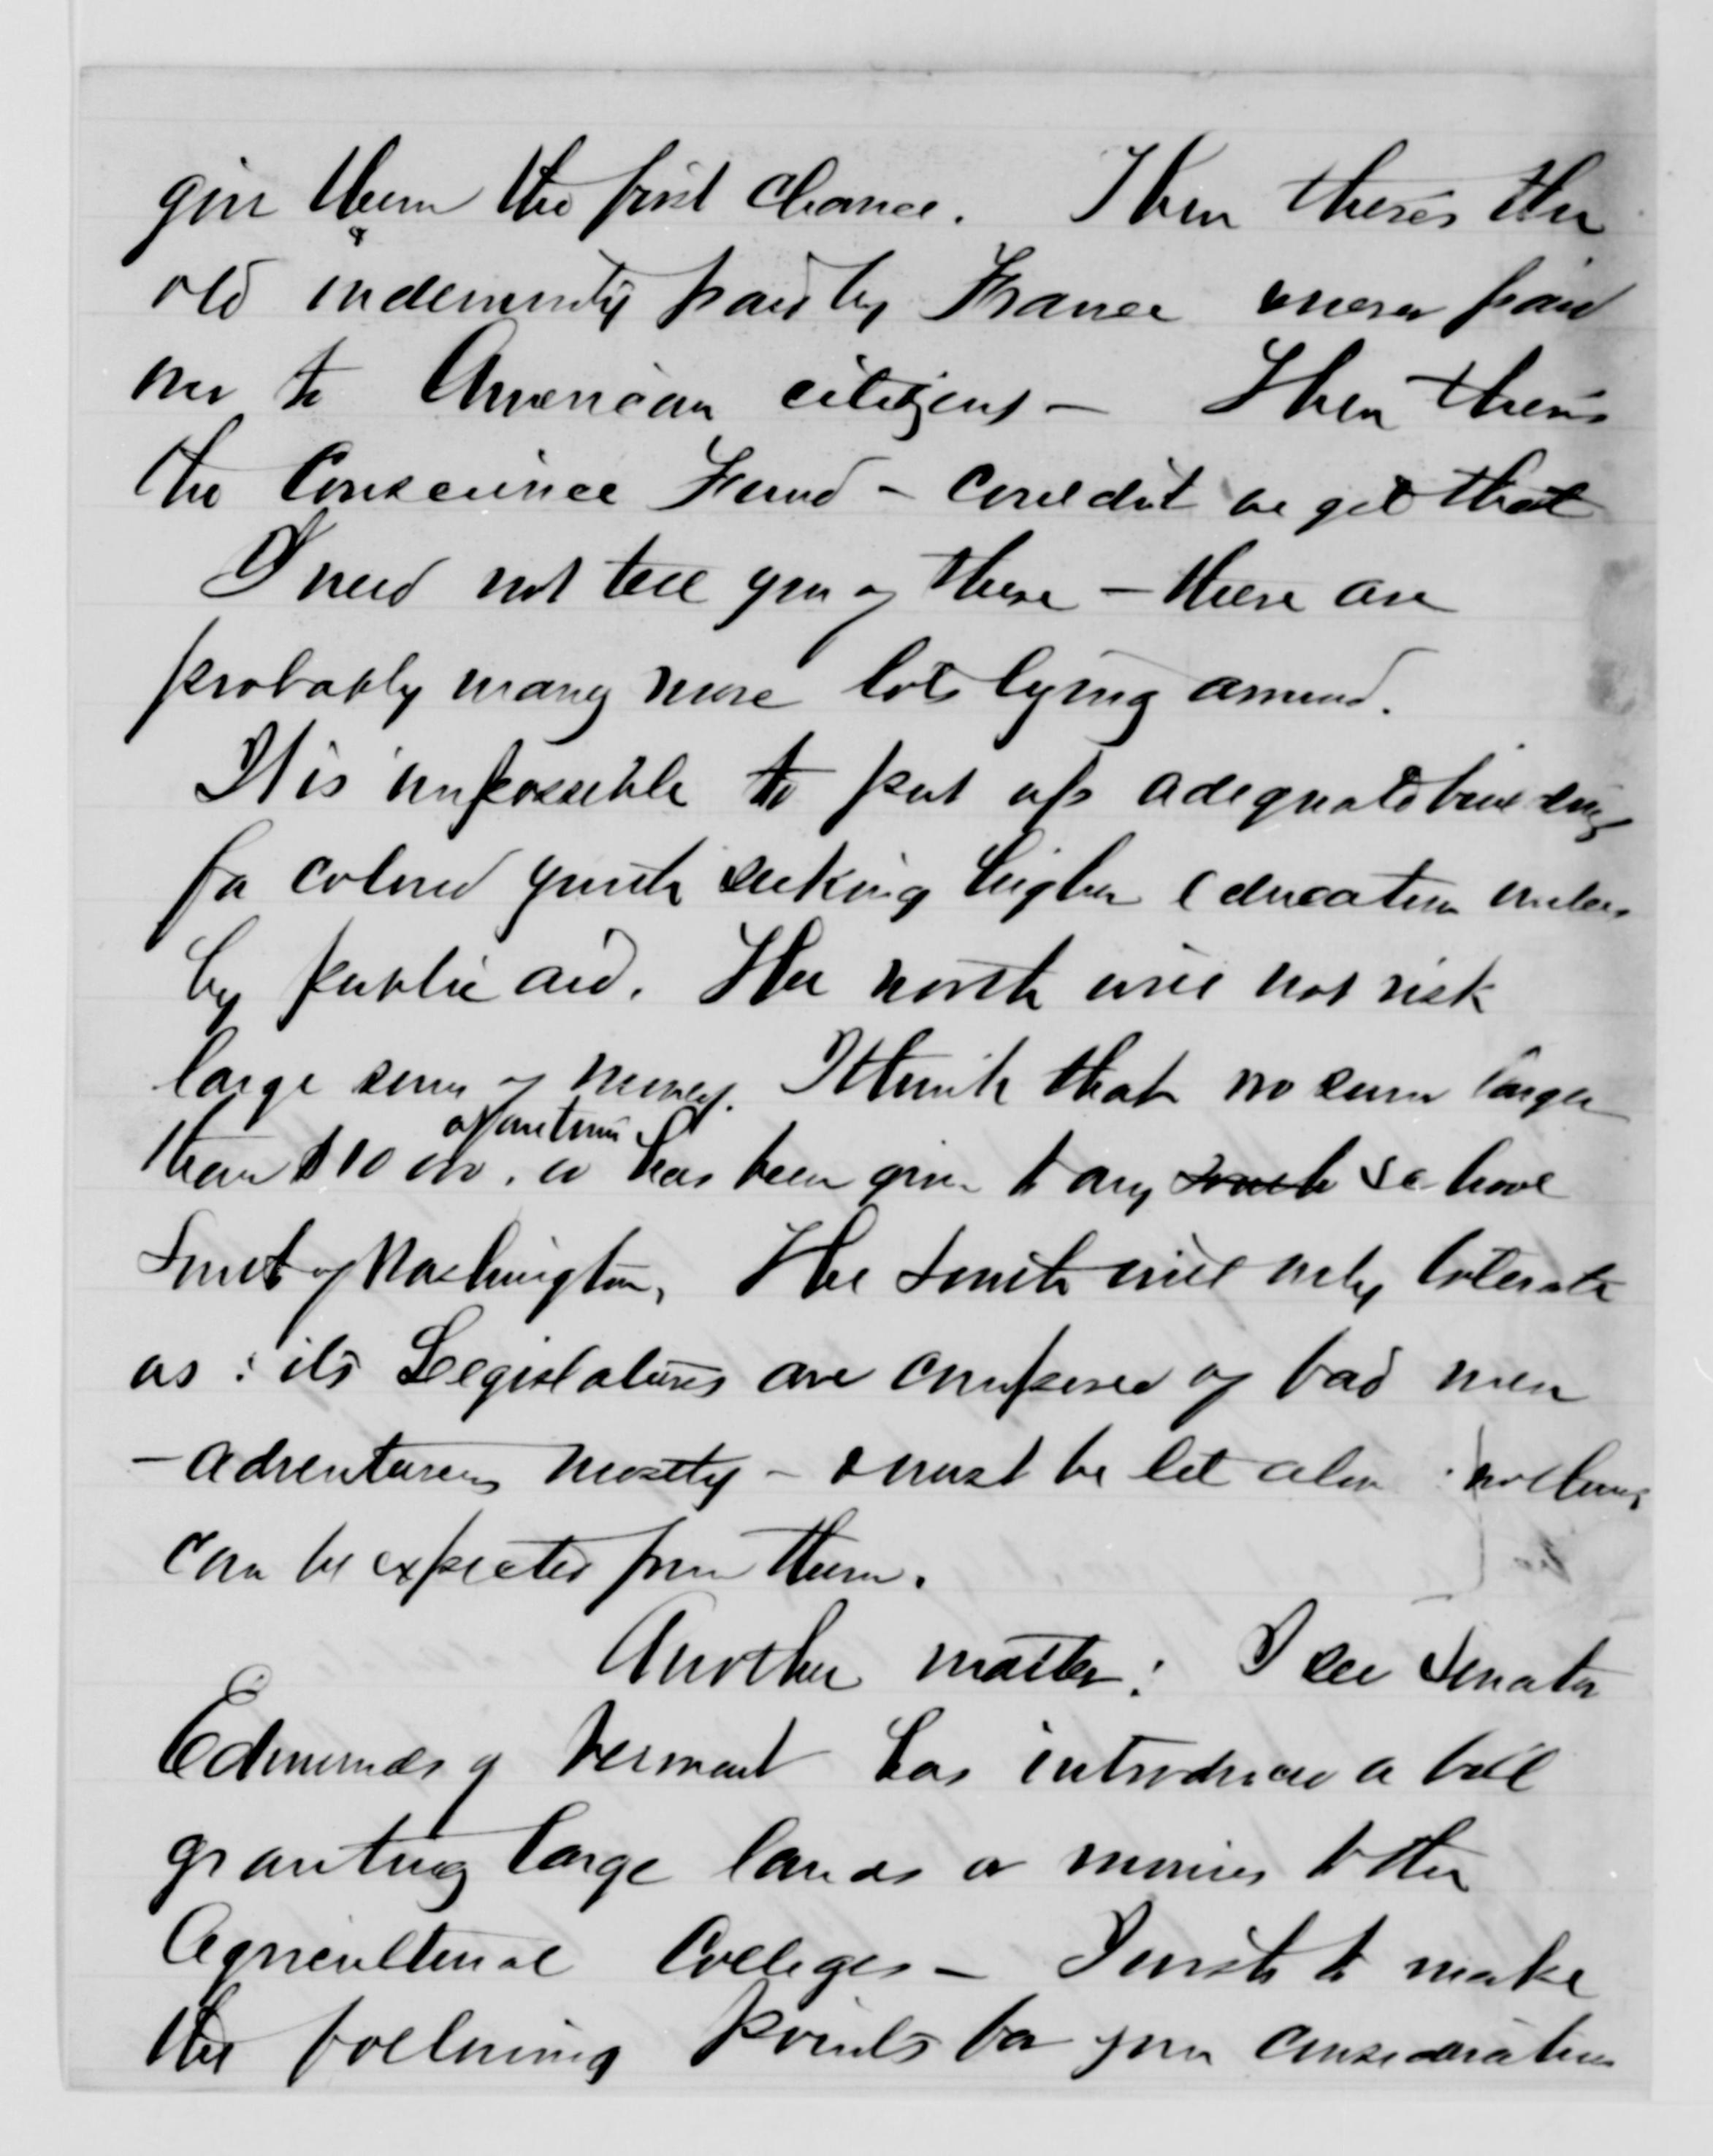 give them the first chance. Then there's the
old indemnity paid by France & never paid
over to American citizens – Then there's
the Conscience Fund – couldn't we get that
I need not tell you of these – there are
probably many more lots lying around.
It is impossible to put up adequate buildings
for colored youth seeking higher education unless
by public aid. The north will not risk
large sums of money. I think that no sum larger
than $10 000. at one time has been given to any South school
South of Washington, The South will only tolerate
us : its Legislatures are composed of bad men
– adventurers mostly – & must be let alone : nothing
can be expected from them.
Another matter : I see Senator
Edmunds of Vermont has introduced a bill
granting large lands or monies to the
Agricultural Colleges – I wish to make
the following points for your consideration